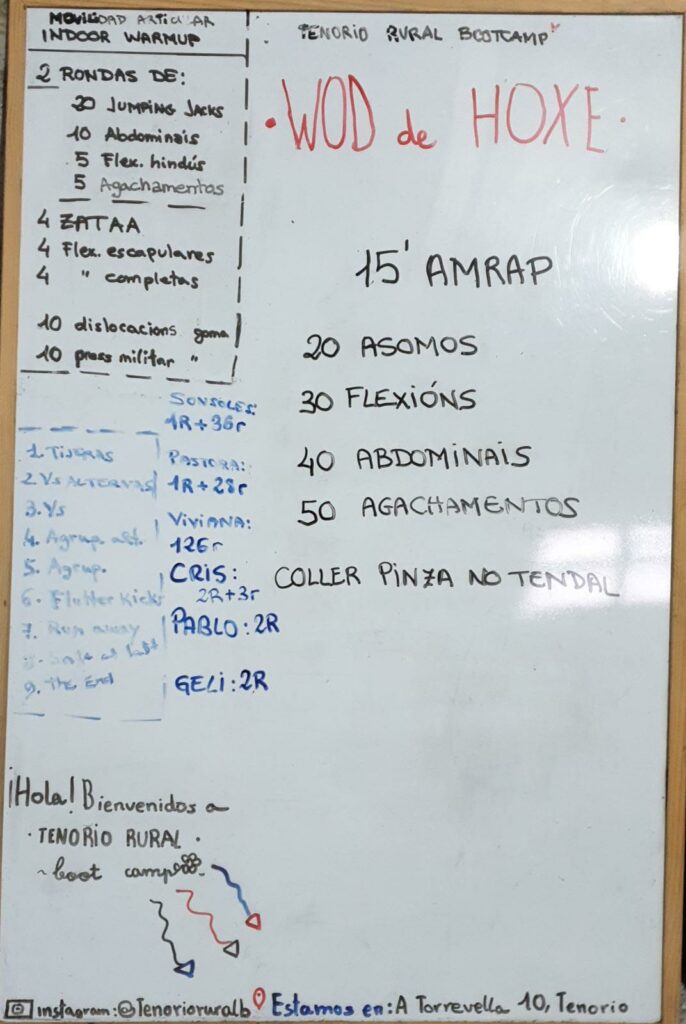 MOVILIDAD ARTICULAR
INDOOR WARMUP
2 RONDAS DE:
20 JUMPING JACKS
10 Abdominais
5 Flex. hindús
5 Agachamentos
4 ZATAA
4 Flex. escapulares
4 " completas
10 dislocacions goma
10 press militar "
1. TIJERAS
2. Ys ALTERNAS
3. Ys
4. Agrup. alt.
5. Agrup.
6. Flutter Kicks
7. Run away
9. The End
SONSOLES:
1R+36r
PASTORA:
1R+28r
VIVIANA:
126r
CRIS:
2R+3r
PABLO: 2R
GELI: 2R
TENORIO RURAL BOOTCAMP
·WOD de HOXE·
15' AMRAP
20 ASOMOS
30 FLEXIÓNS
40 ABDOMINAIS
50 AGACHAMENTOS
COLLER PINZA NO TENDAL
¡Hola! Bienvenidos a
· TENORIO RURAL ·
~ boot camp
instagram: @Tenorioruralb Estamos en: A Torrevella 10, Tenorio